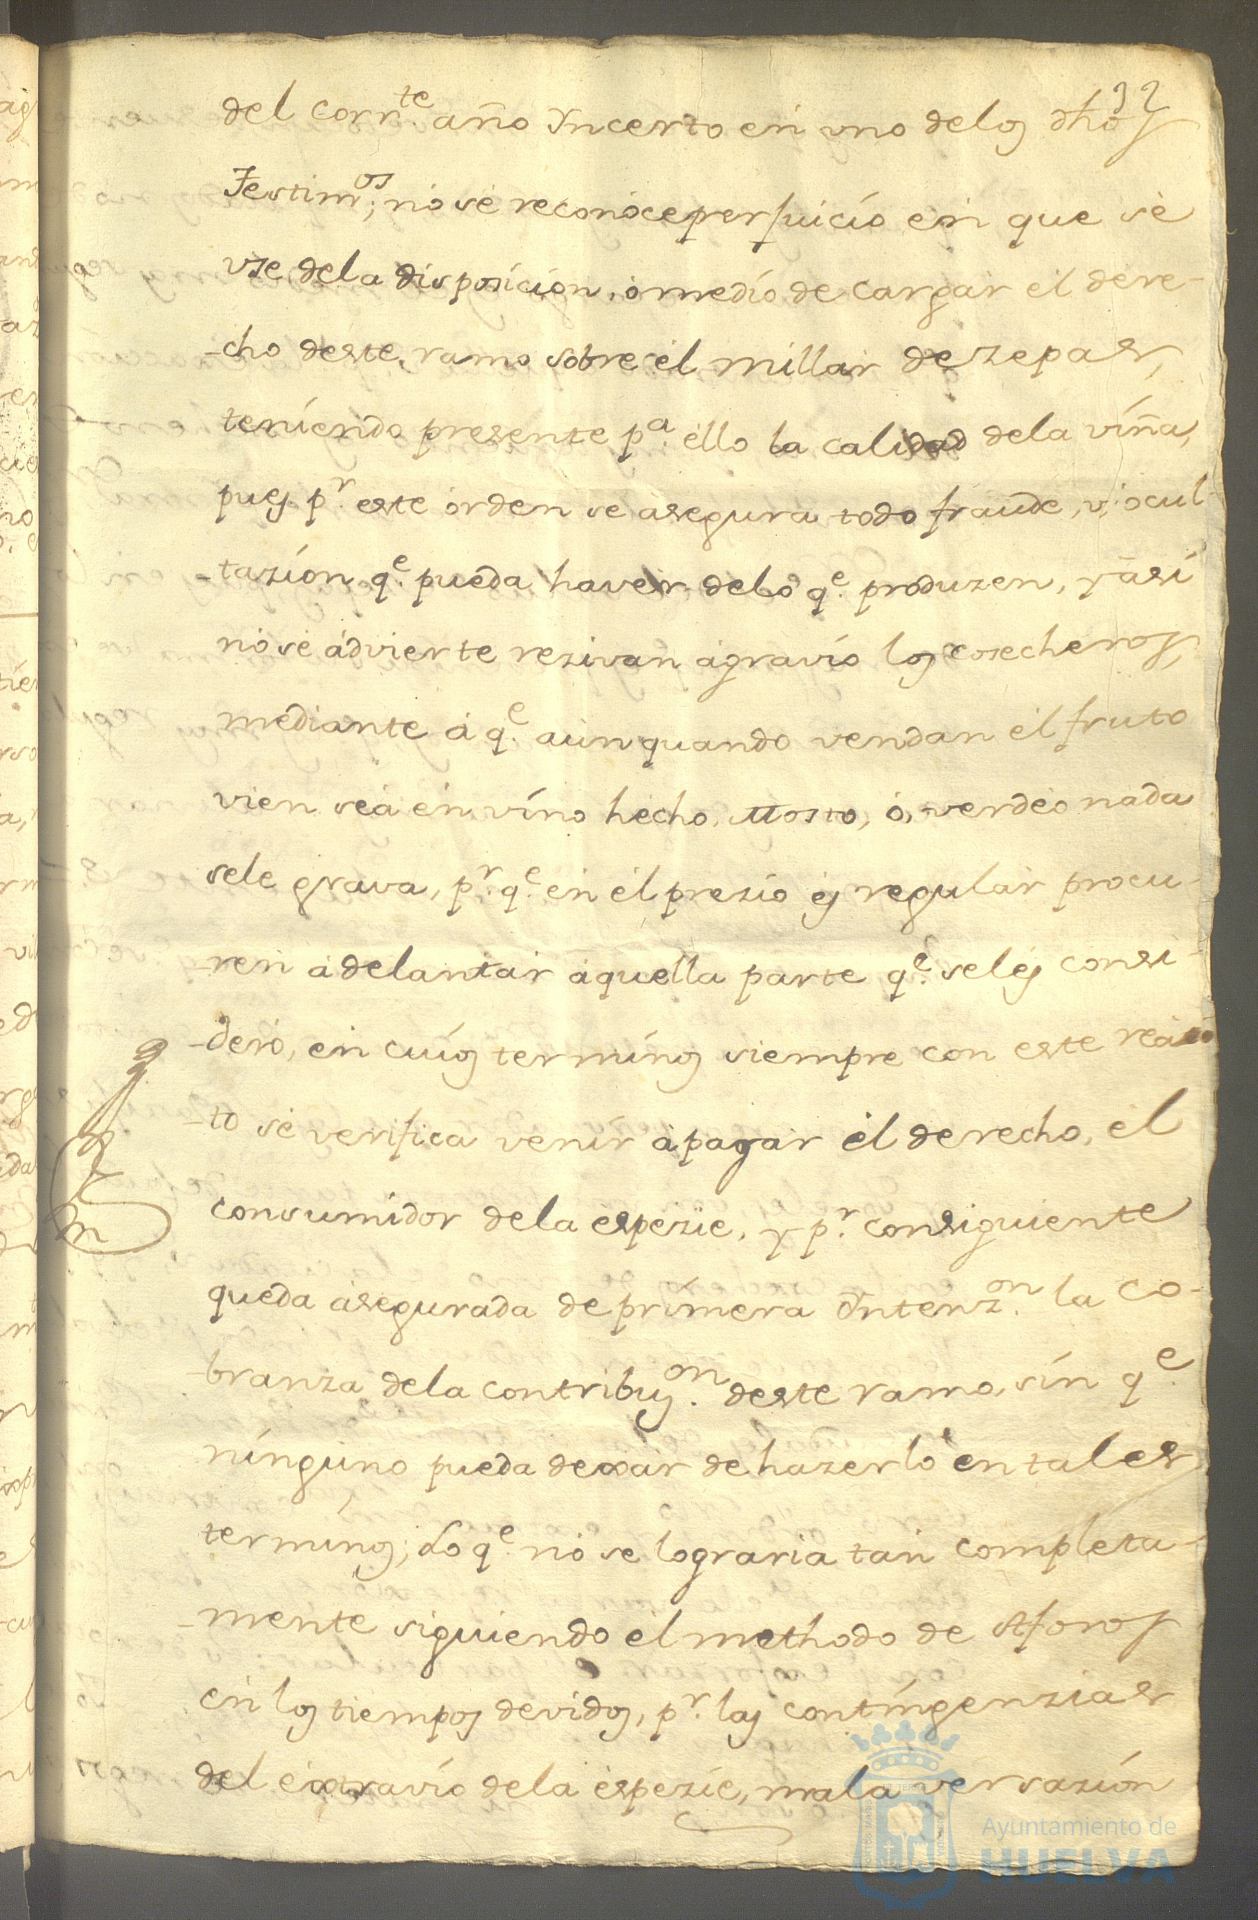 32
del corr.te año Yncerto en vno delos dhos
Testim.os; no se reconoce perjuicio en que se
vse dela disposicion, o medio de cargar el dere-
-cho deste ramo sobre el millar de zepas,
teniendo presente p.a ello la calidad dela viña,
pues p.r este orden se asegura todo fraude, v, ocul-
-tazion q.e pueda haver delo q.e produzen, y asi
no se advierte rezivan agravio los cosecheros,
mediante a q.e aun quando vendan el fruto
vien sea en vino hecho, Mosto, o, verdeo nada
sele grava, p.r q.e en el prezio es regular procu-
-ren adelantar aquella parte q.e seles consi-
-deró, en cuios terminos siempre con este
-to se verifica venir a pagar el derecho, el
consumidor dela espezie, y p.r consiguiente
queda asegurada de primera Yntenz.on la co-
-branza dela contribuz.on deste ramo, sin q.e
ninguno pueda dexar de hazerlo en tales
terminos; Lo q.e no se lograria tan completa-
-mente siguiendo el methodo de Aforos
en los tiempos devidos, p.r las contingenzias
del extravio dela espezie, mala versazion
Ayuntamiento de
HUELVA